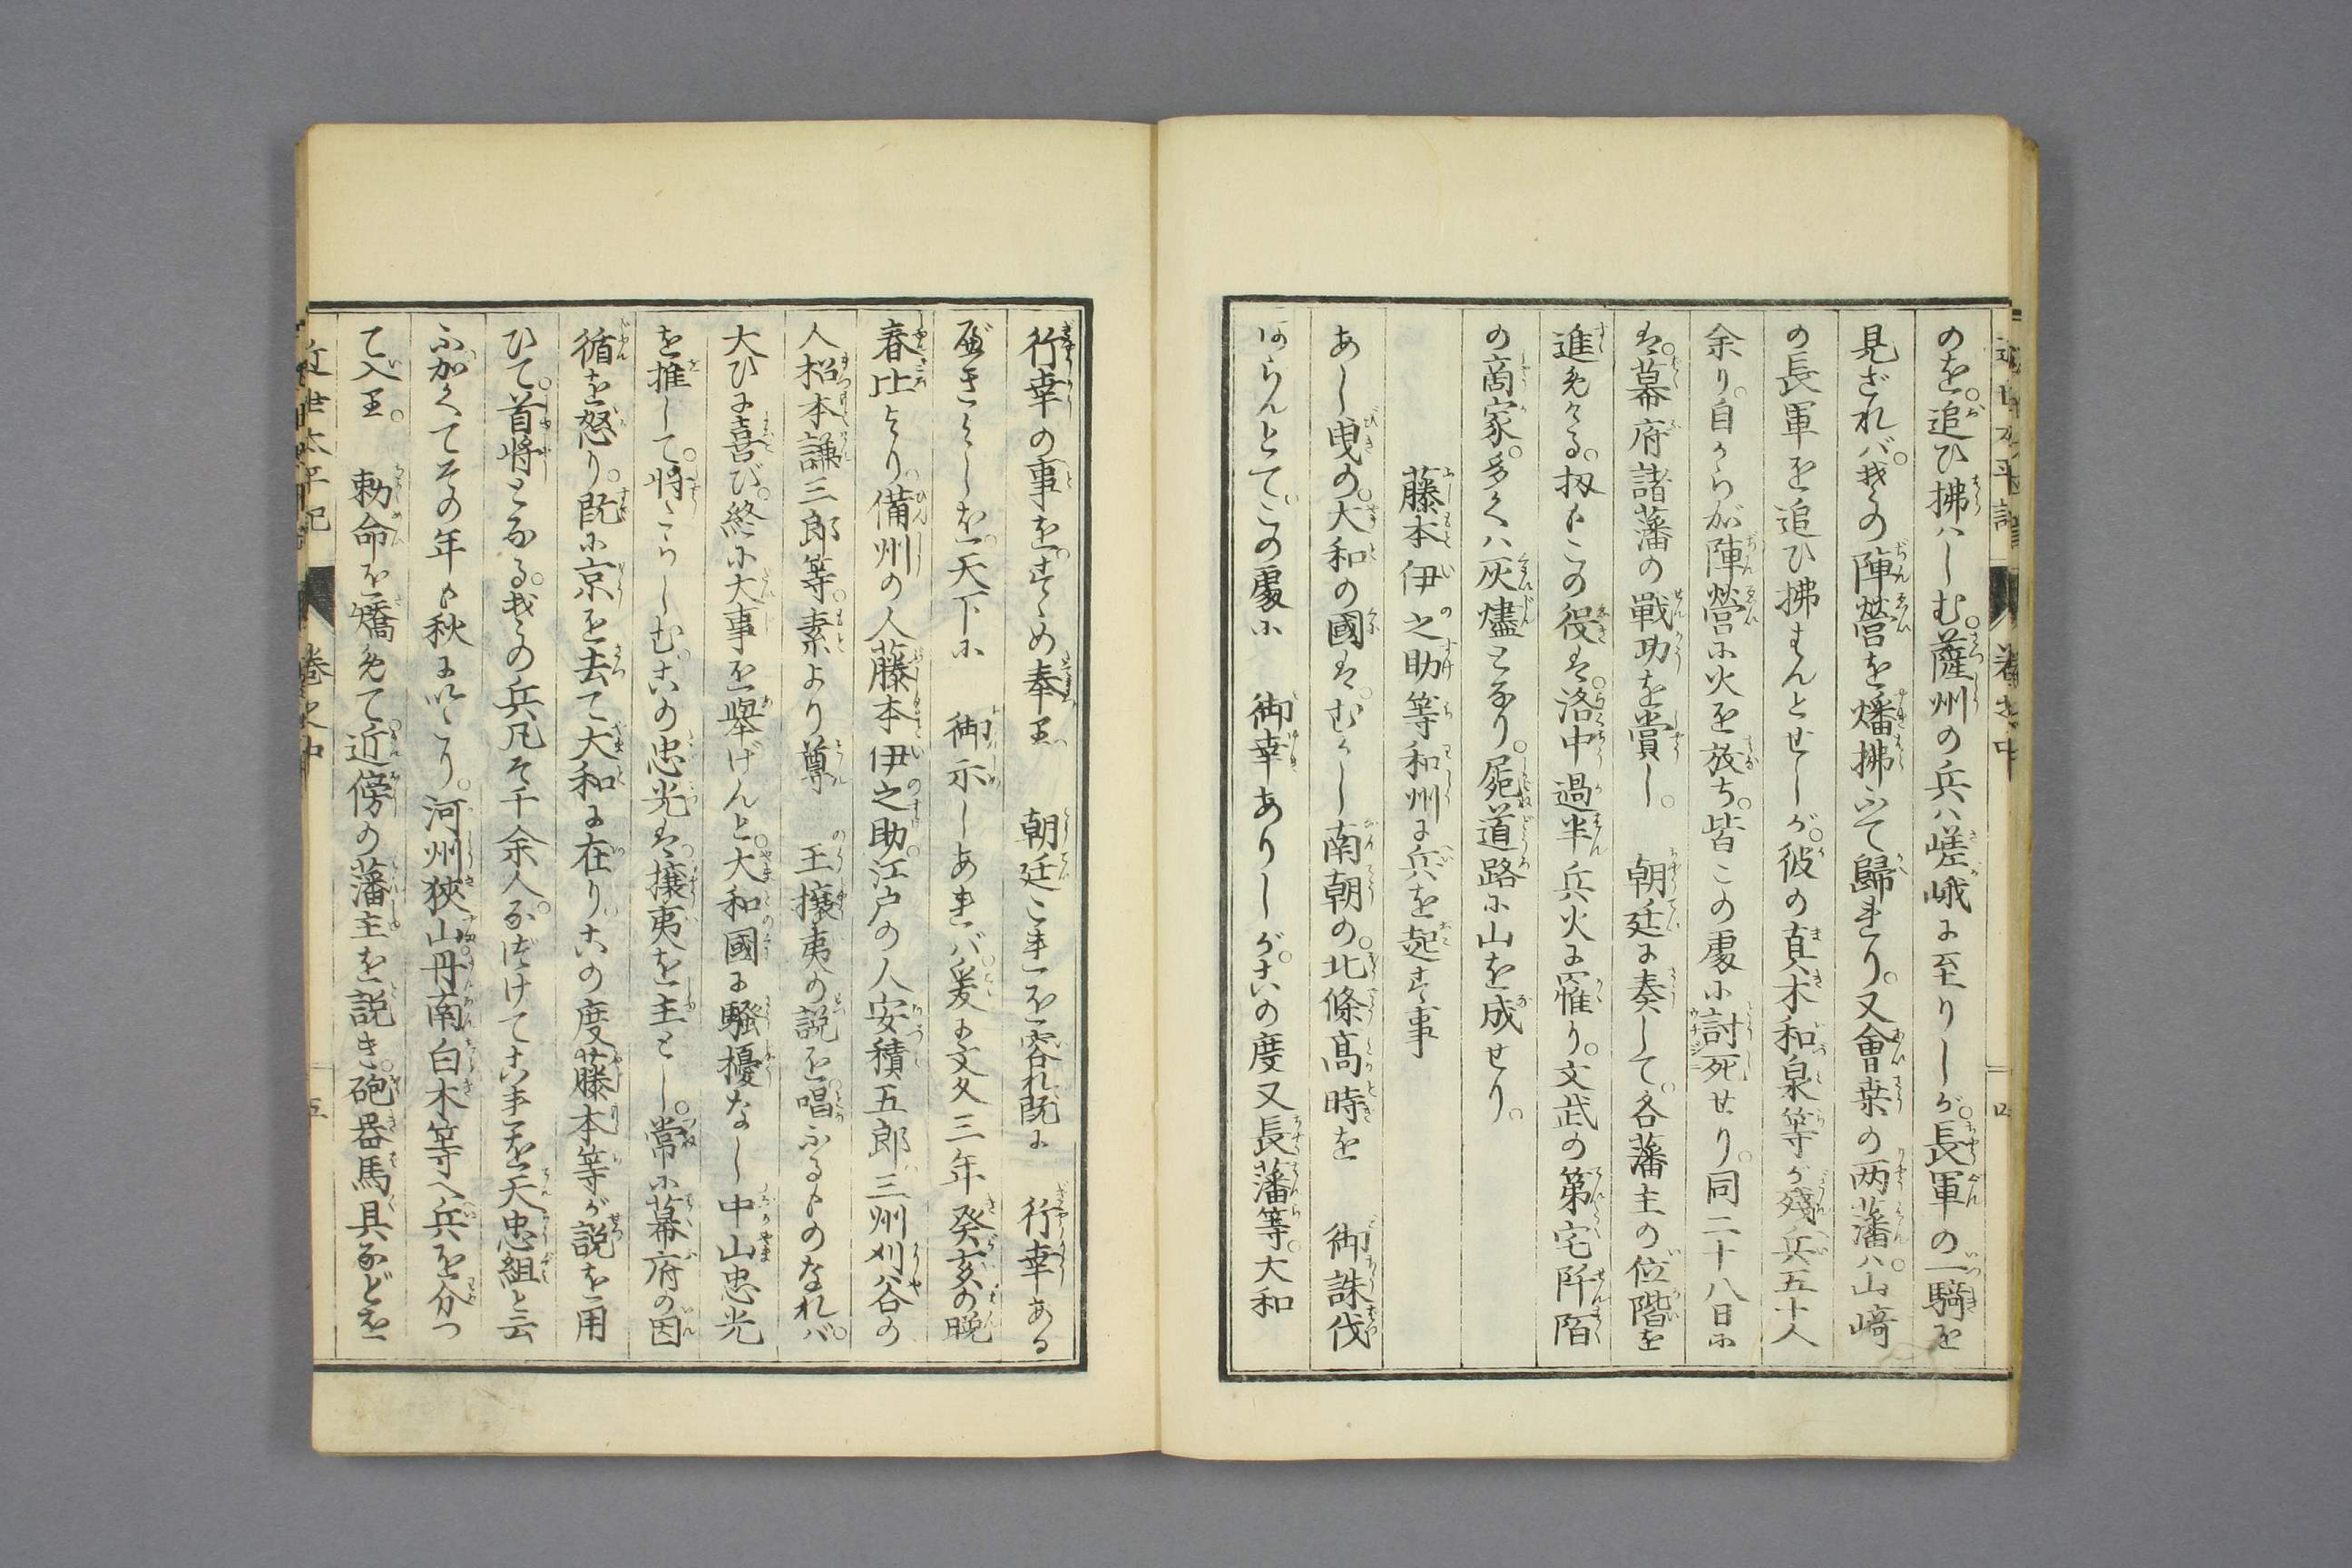 のを。追ひ拂ハしむ。薩州の兵ハ嵯峨に至りしが。長軍の一騎を
見ざれバ。我の陣營を燔拂ひて歸れり。又會桒の两藩ハ。山﨑
の長軍を追ひ拂はんとせしが。彼の真木和泉等が殘兵五十人
余り。自らが陣營に火を放ち。皆この處に討死せり。同二十八日に
は。幕府諸藩の戰功を賞し。朝廷に奏して。各藩主の位階を
進めける。扨もこの役は。洛中過半兵火に罹り。文武の第宅阡陌
の商家。多くハ灰燼となり。屍道路に山を成せり。
藤本伊之助等和州に兵を起す事
あし曳の。大和の國は。むかし南朝の。北條髙時を　御誅伐
あらんとて。この處に　御幸ありしが。此の度又長藩等。大和
行幸の事を。すゝめ奉り　朝廷これを容れ既に　行幸ある
べきよしを。天下に　御示しあれバ。爰に文久三年癸亥の晩
春比より。備州の人藤本伊之助。江戸の人安積五郎三州刈谷の
人松本謙三郎等。素より尊　王攘夷の説を唱ふるものなれバ。
大ひに喜び。終に大事を擧げんと。大和國に騷擾なし中山忠光
を推して。將とならしむ。此の忠光は。攘夷を主とし。常に幕府の因
循を怒り。既に京を去て大和に在り此の度藤本等が説を用
ひて。首將となる。我の兵凡そ千余人。なづけて此れを天忠組と云
ふ加くてその年も秋にいたり。河州狹山丹南白木等へ兵を分つ
て入り。　勅命を矯めて近傍の藩主を説き。砲器馬具などを
近世太平記
卷之中
五